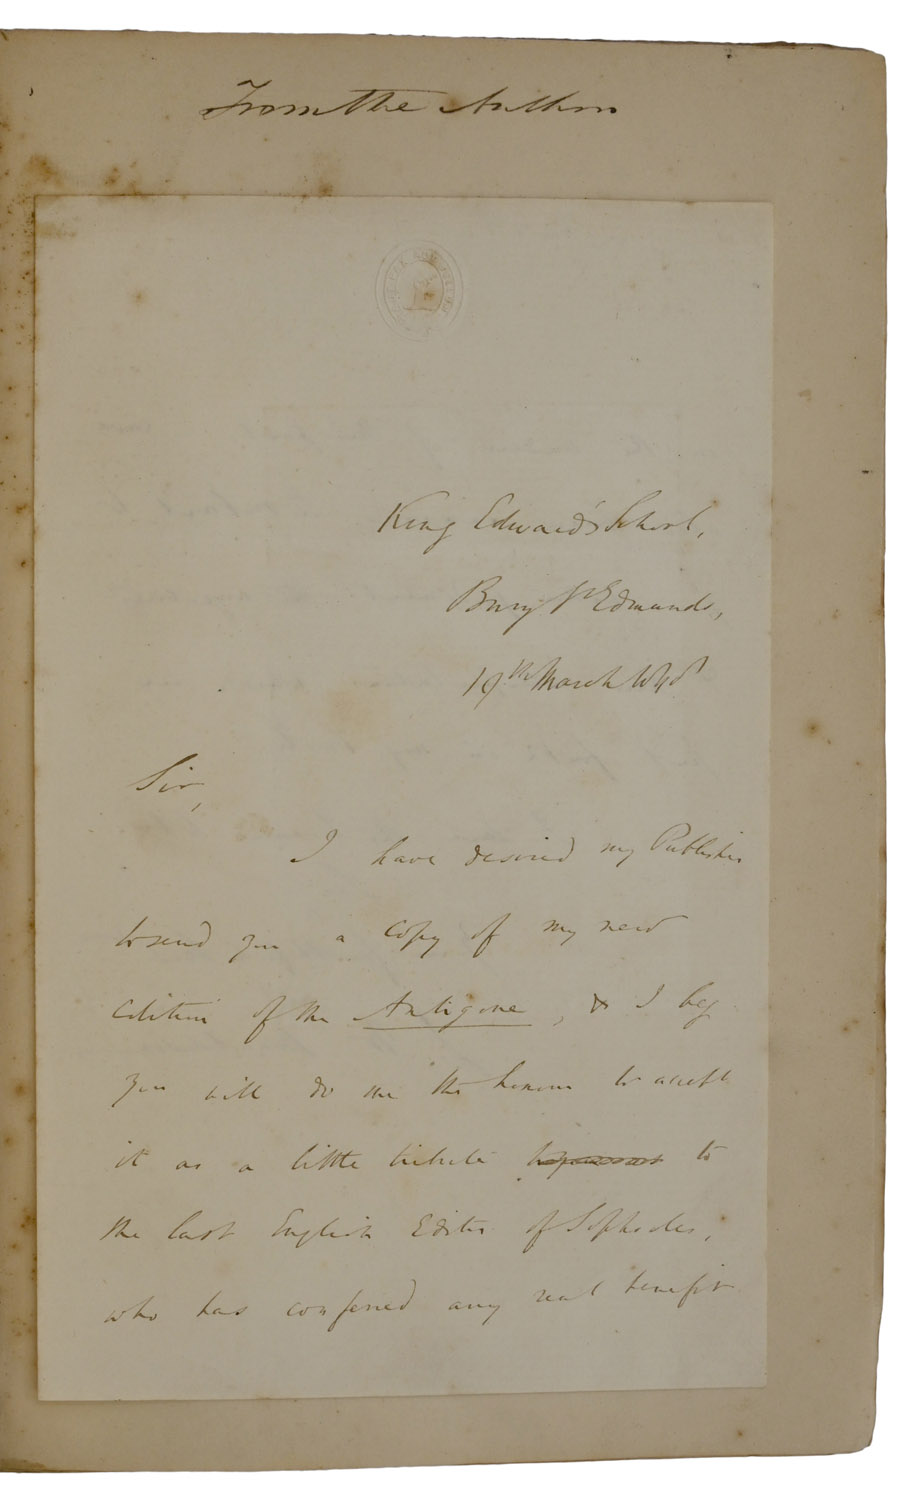 From the Author
King Edward's School,
Bury St Edmunds,
19th March
Sir,
I have desired my Publisher
to send you a copy of my new
edition of the Antigone, & I beg
you will do me the honour to accept
it as a little tribute to
the last English Editor of Sophocles,
who has conferred any real benefit